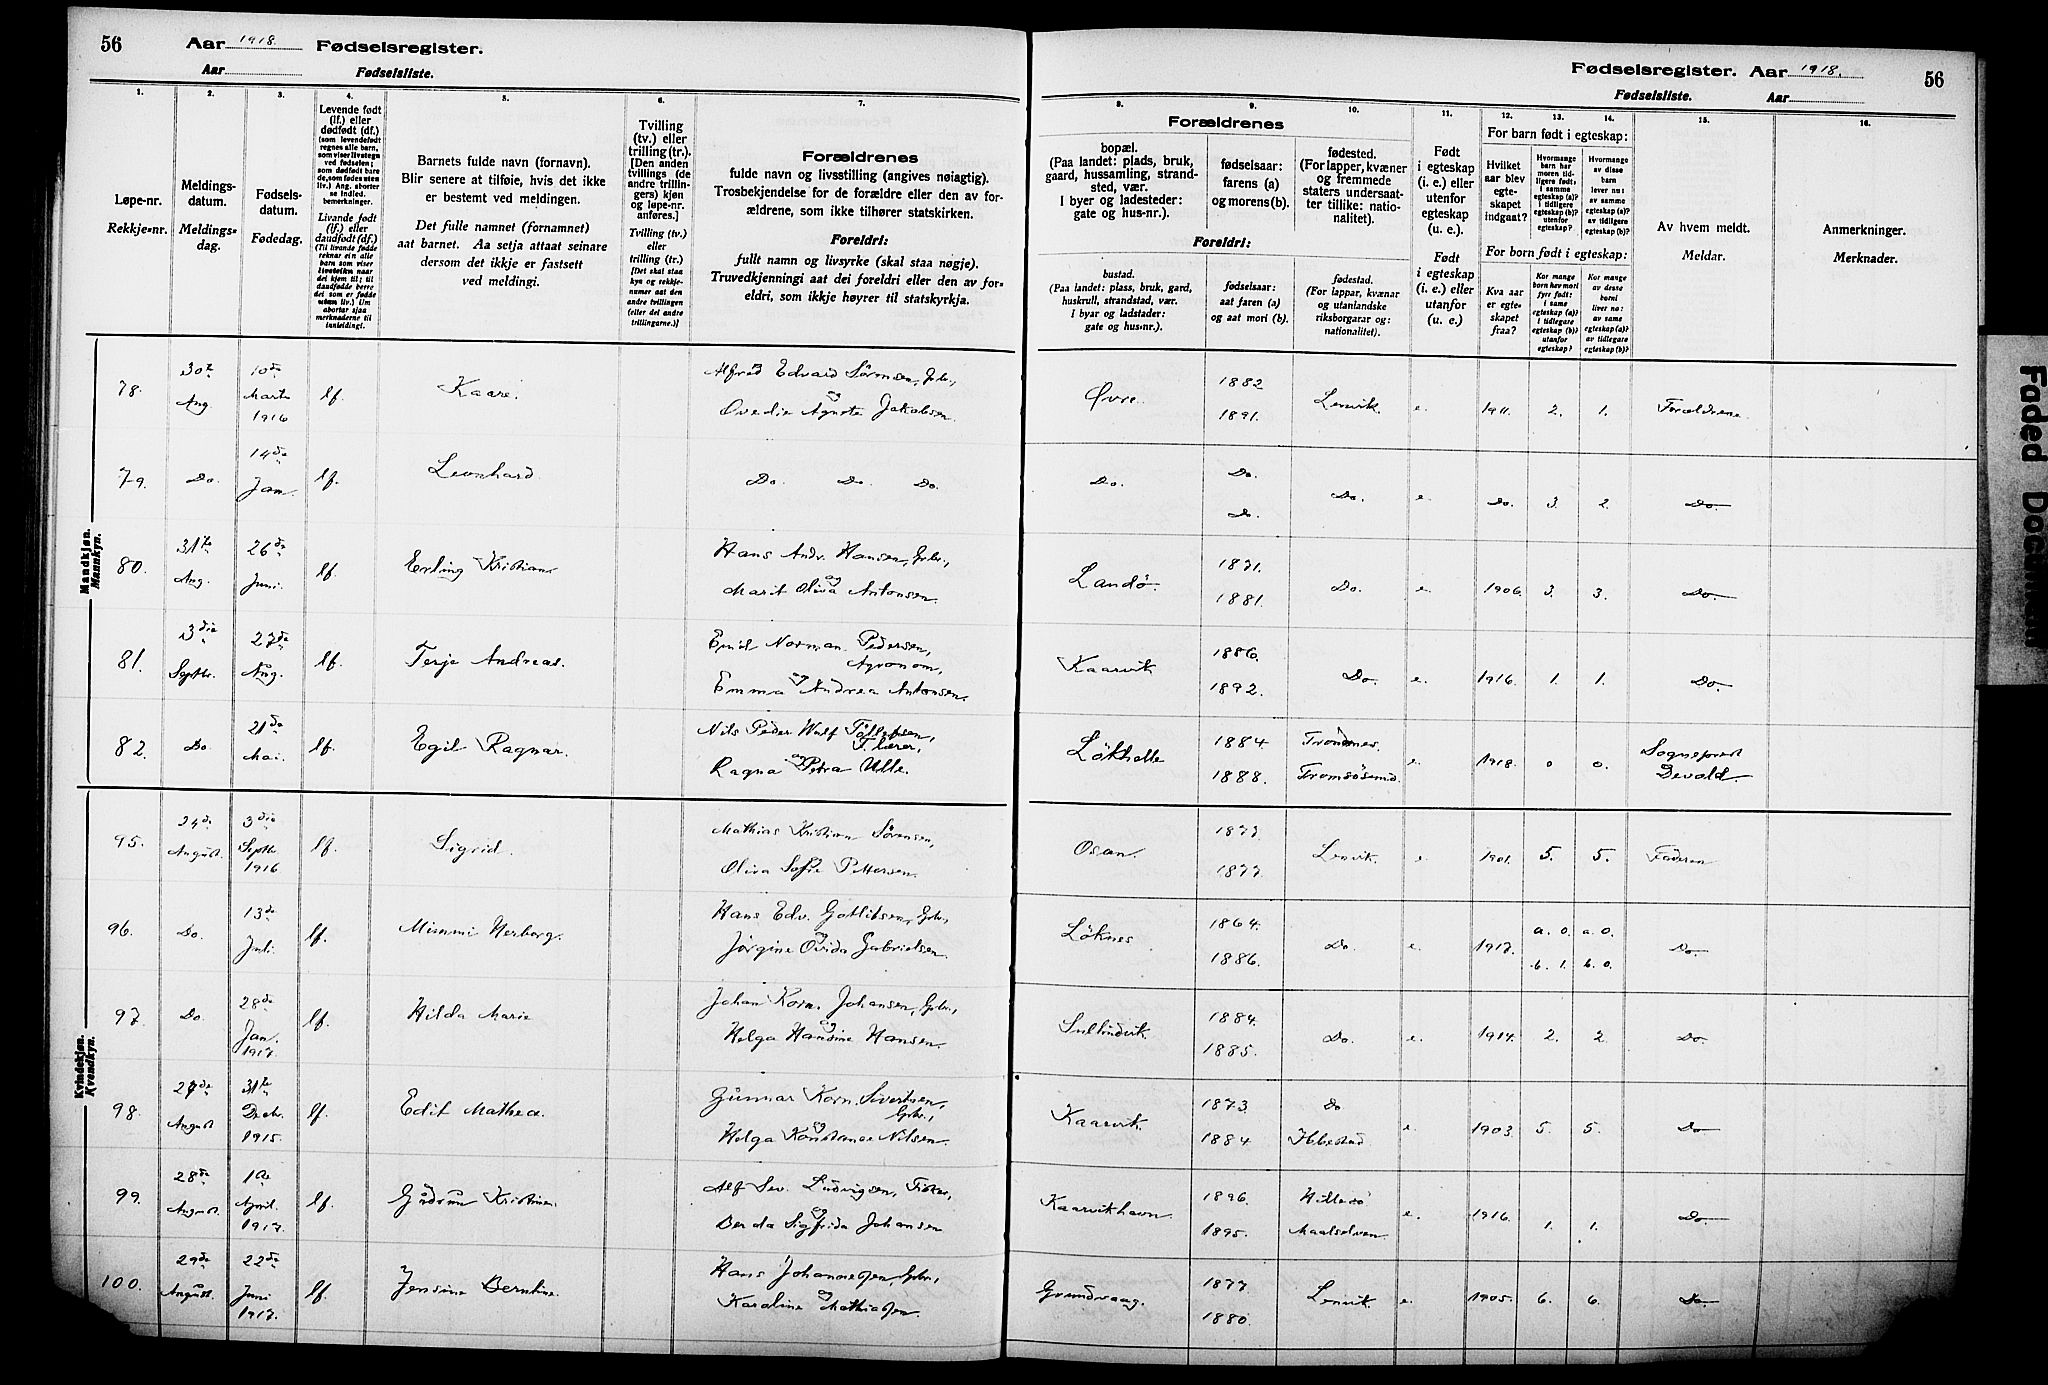 56 Aar 1918. Fødselsregister.
Aar Fødselsliste.
Fødselsregister. Aar 1918. 56
Fødselsliste. Aar
1. 2. 3. 4. 5. 6. 7.
Løpe-nr.
Rekkje-nr.
Meldings-
datum.
Meldings-
dag.
Fødsels-
datum.
Fødedag.
Levende født
(lf.) eller
dødfødt (df.)
(som levendefødt
regnes alle barn,
som viser livstegn
ved fødselen;
som dødfødt bare
de, som fødes uten
liv.) Ang. aborter
se indled.
bemerkninger.
Livande født
(lf.) eller
daudfødt (df.)
(Til livande fødde
reknar ein alle
barn som viser
livsteikn naar
dei kjem til; til
daudfødde berre
dei som er fødde
utan liv.) Um
abortar sjaa
merknaderne til
innleiding!
Barnets fulde navn (fornavn).
Blir senere at tilføie, hvis det ikke
er bestemt ved meldingen.
Det fulle namnet (fornamnet)
aat barnet. Aa setja attaat seinare
dersom det ikkje er fastsett
ved meldingi.
Tvilling
(tv.) eller
trilling (tr.).
[Den anden
tvillings (de
andre trillin-
gers) kjøn
og løpe-nr.
anføres.]
Tvilling (tv.)
eller
trilling (tr.)
[Det skal staa
kyn og rekkje-
numer aat den
andre tvillingen
(eller dei andre
trillingarne.)]
Forældrenes
fulde navn og livsstilling (angives nøiagtig).
Trosbekjendelse for de forældre eller den av for-
ældrene, som ikke tilhører statskirken.
Foreldri:
fullt namn og livsyrke (skal staa nøgje).
Truvedkjenningi aat dei foreldri eller den av for-
eldri, som ikkje høyrer til statskyrkja.
8. 9. 10. 11. 12. 13. 14. 15. 16.
Forældrenes
bopæl.
(Paa landet: plads, bruk,
gaard, hussamling, strand-
sted, vær.
I byer og ladesteder:
gate og hus-nr.).
fødselsaar:
farens (a)
og morens (b).
fødested.
(For lapper, kvæner
og fremmede
staters undersaat-
ter tillike: natio-
nalitet).
Foreldri:
bustad.
(Paa landet: plass, bruk, gard,
huskrull, strandstad, vær.
I byar og ladstader:
gate og hus-nr.).
fødselsaar:
aat faren (a)
og aat mori (b).
fødestad.
(For lappar, kvænar
og utanlandske
riksborgarar og:
nationalitet).
Født
i egteskap
(i. e.) eller
utenfor
egteskap
(u. e.).
Født
i egteskap
(i. e.) eller
utanfor
(u. e.)
For barn født i egteskap:
Hvilket
aar blev
egte-
skapet
indgaat?
Hvormange
barn har
moren tid-
ligere født:
i samme
egteskap (a)?
i tidligere
egteskap (b)?
utenfor
egteskap?
Hvormange
av disse
barn
lever nu:
av samme
egteskap (a)?
av tidligere
egteskap (b)?
For born født i egteskap:
Kva aar
er egte-
skapet
fraa?
Kor mange
born hev mori
fyrr født:
i same
egteskap (a)?
i tidlegare
egteskap (b)?
utanfor
egteskap?
Kor mange
av desse
borni
liver no:
av same
egteskap (a)?
av tidlegare
egteskap (b)?
Av hvem meldt.
Meldar.
Anmerkninger.
Merknader.
Mandkjøn.
Mannkyn.
78. 30te Ang. 10de Marts 1916 lf. Kaare. Alfred Edvard Sörensen, Gbr., og Ovedie Agnete Jakobsen. Øvre. 1882 1891. Lenvik. e. 1911. 2. 1. Forældrene
79. Do. 14de Jan. lf. Leonhard. Do. Do. Do. Do. Do. Do. Do. e. Do. 3. 2. Do.
80. 31te Aug. 26de Juni. lf. Erling Kristian Hans Andr. Hansen, Gbr., og Marit Oliva Antonsen. Landö. 1871. 1881. Do. e. 1906. 3. 3. Do.
81. 3die Septbr. 27de Aug. lf. Terje Andreas. Emil Norman Pedersen, Agronom, og Emma Andrea Antonsen. Kaarvik 1886. 1892. Do. e. 1916. 1. 1. Do.
82. Do. 21de Mai. lf. Egil Ragnar. Nils Peder Wulf Tollefsen, F. lærer, og Ragna Petra Ulle. 1884. 1888. Trondenes. Tromsösund. e. 1918. 0 0. Sogneprest Devold.
Kvindekjøn.
Kvendkyn.
95. 24de August. 3die Septbr 1916 lf. Sigrid. Mathias Kristian Sörensen, Oliva Sofie Pettersen. Osan. 1877. 1877. Lenvik. e. 1901. 5. 5. Faderen
96. Do. 13de Juli. lf. Mimmi Herborg. Hans Edv. Gotlibsen, Gbr., og Jörgine Ovida Gabrielsen. Löknes 1864. 1886. Do. e. 1917. a. 0. b. 1. a. 0. b. 0. Do.
97. Do. 28de Jan. 1917. lf. Hilda Marie Johan Korn. Johansen, Gbr., og Helga Hansine Hansen. 1884. 1885. Do. e. 1914. 2. 2. Do.
98. 27de August 31te Decbr. 1915. lf. Edit Mathea. Gunnar Korn. Sivertsen, Gbr., og Helga Konstanse Nilsen. Kaarvik. 1873. 1884. Do Ibbestad e. 1903. 5. 5. Do
99. 28de August. 1ste April. 1917. lf. Gudrun Kristine. Alf Sev. Ludvigsen, Fisker, og Berda Sigfrida Johansen Kaarvikhavn. 1896. 1895. Hillesö Maalselven. e. 1916. 1. 1. Do
100. 29de August. 22de Juni 1917. lf. Jensine Berntine. Hans Johannesen, Gbr., og Karoline Mathiasen. Grundvaag. 1877. 1880. Lenvik. e. 1905. 6. 6. Do.
Faded Document